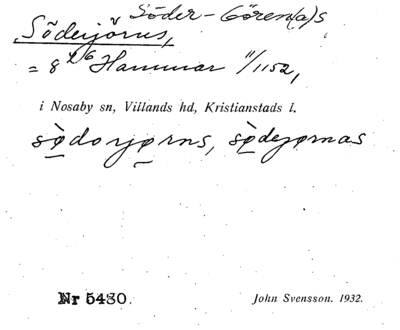 Söder-Gören(a)s
Söderjörns,
= 8 Hammar 11/1152,
i Nosaby sn, Villands hd, Kristianstads l.
sødorjørns, sødejørnas
Nr 5430. John Svensson. 1932.